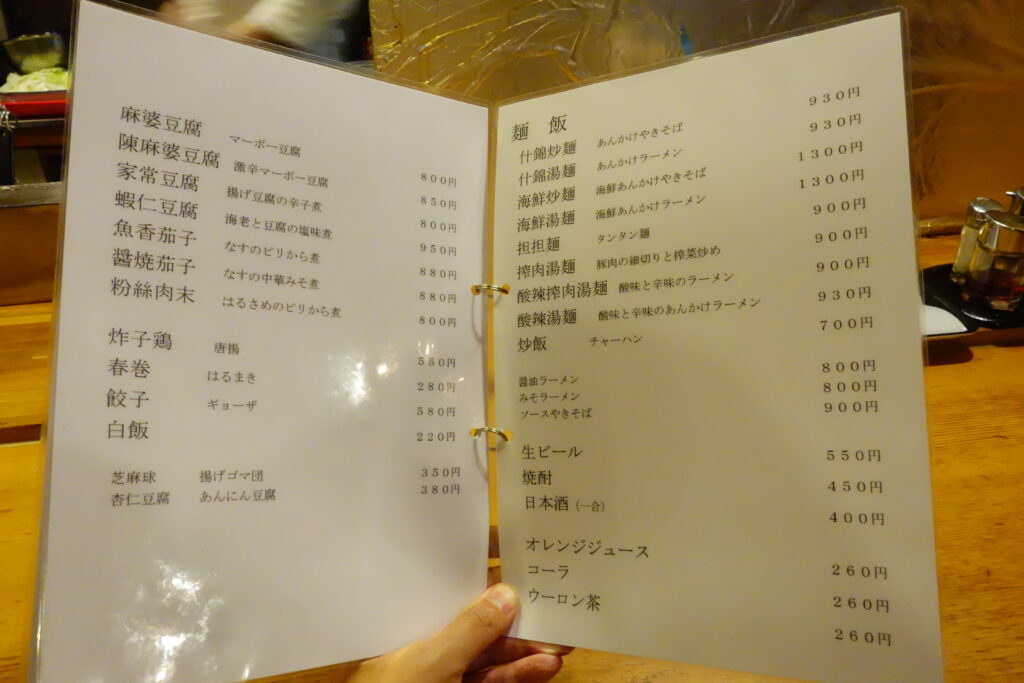 麻婆豆腐 マーボー豆腐 800円
陳麻婆豆腐 激辛マーボー豆腐 850円
家常豆腐 揚げ豆腐の辛子煮 800円
蝦仁豆腐 海老と豆腐の塩味煮 950円
魚香茄子 なすのピリから煮 880円
醤焼茄子 なすの中華みそ煮 880円
粉絲肉末 はるさめのピリから煮 800円
炸子鶏 唐揚 550円
春巻 はるまき 280円
餃子 ギョーザ 580円
白飯 220円
芝麻球 揚げゴマ団 350円
杏仁豆腐 あんにん豆腐 380円
麺 飯
什錦炒麺 あんかけやきそば 930円
什錦湯麺 あんかけラーメン 930円
海鮮炒麺 海鮮あんかけやきそば 1300円
海鮮湯麺 海鮮あんかけラーメン 1300円
担担麺 タンタン麺 900円
搾肉湯麺 豚肉の細切りと搾菜炒め 900円
酸辣搾肉湯麺 酸味と辛味のラーメン 900円
酸辣湯麺 酸味と辛味のあんかけラーメン 930円
炒飯 チャーハン 700円
醤油ラーメン 800円
みそラーメン 800円
ソースやきそば 900円
生ビール 550円
焼酎 450円
日本酒（一合） 400円
オレンジジュース 260円
コーラ 260円
ウーロン茶 260円